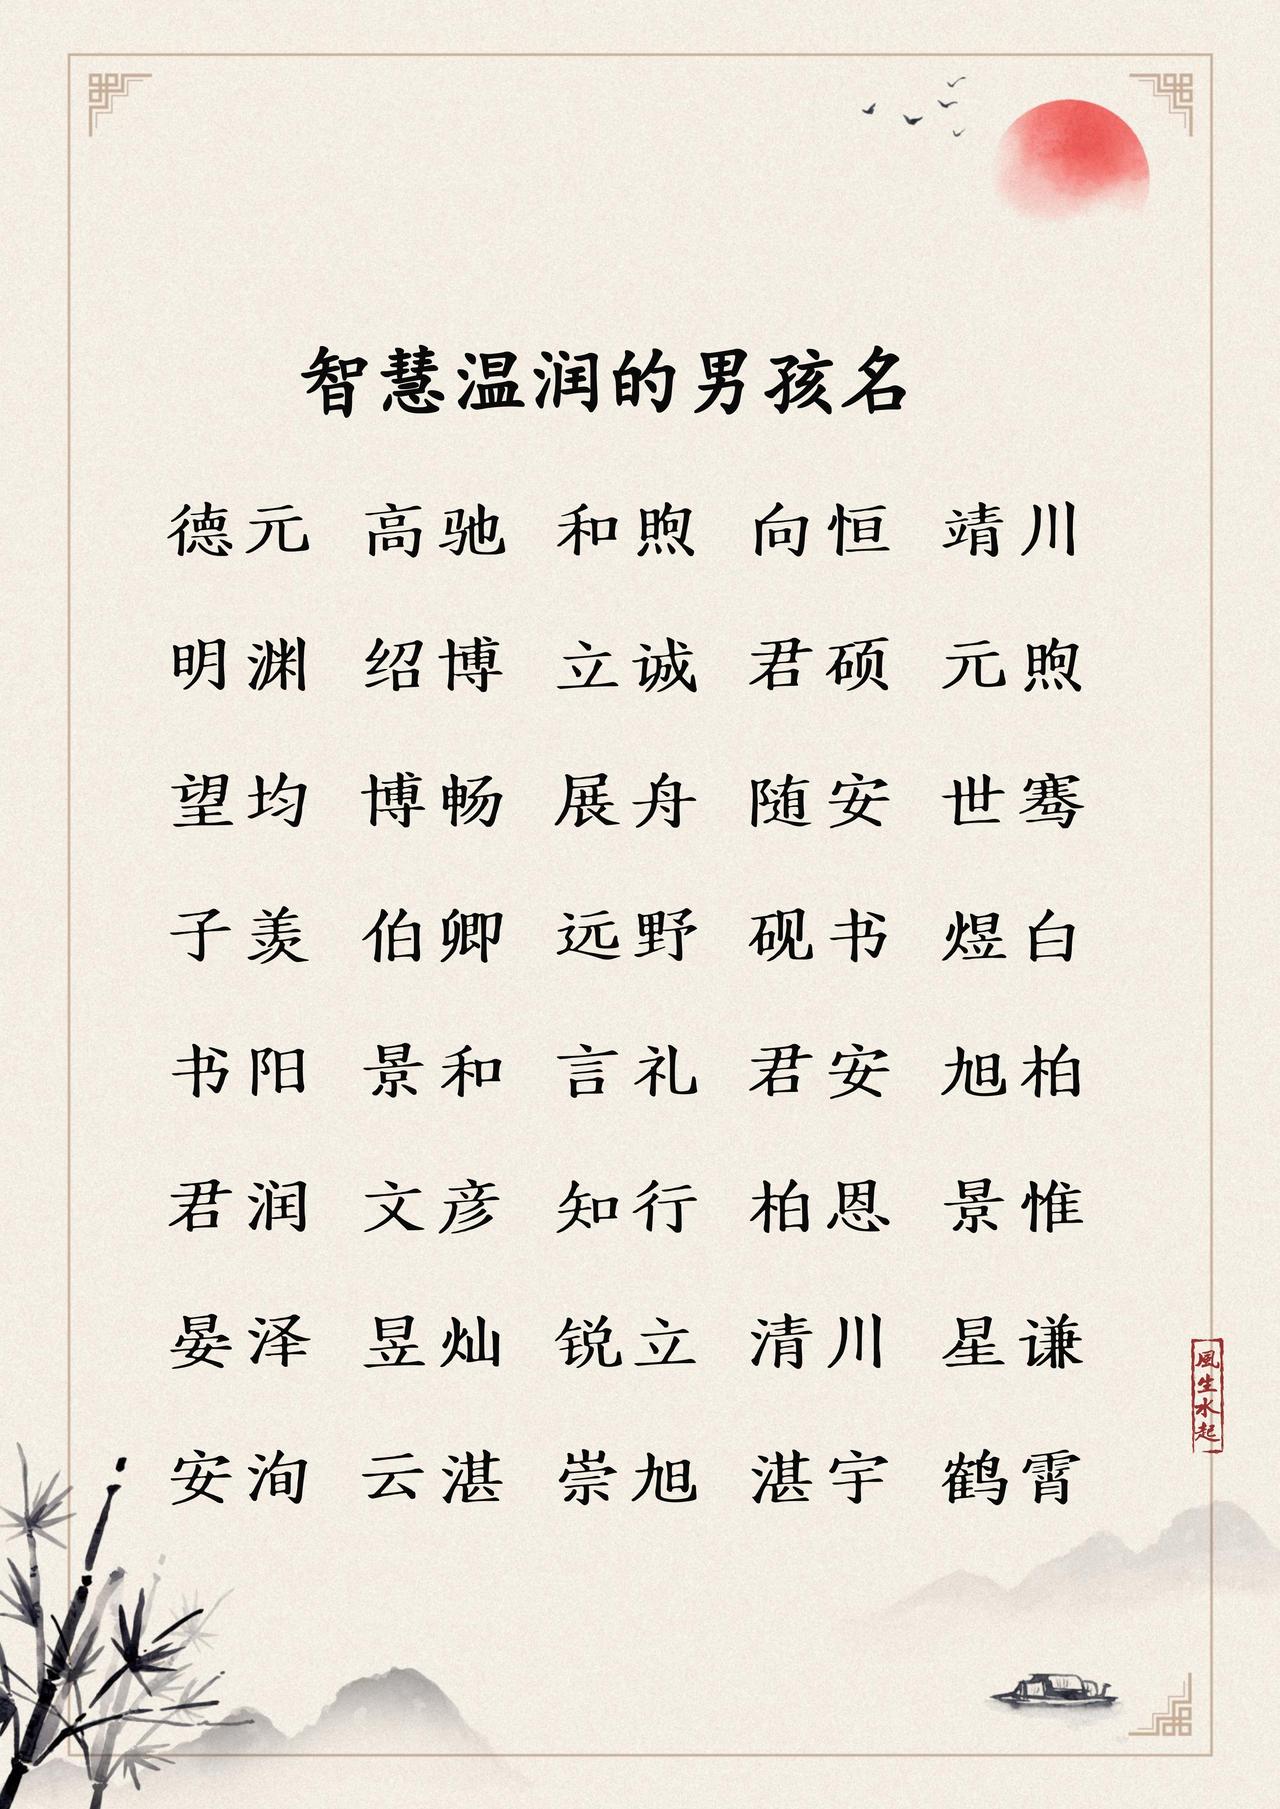 智慧温润的男孩名
德元 高驰 和煦 向恒 靖川
明渊 绍博 立诚 君硕 元煦
望均 博畅 展舟 随安 世骞
子羡 伯卿 远野 砚书 煜白
书阳 景和 言礼 君安 旭柏
君润 文彦 知行 柏恩 景惟
晏泽 昱灿 锐立 清川 星谦
安洵 云湛 崇旭 湛宇 鹤霄
風生水起